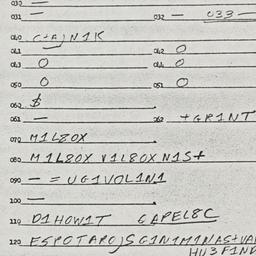 030 —
031 — 032 — 033 —
040 C+A)N1K
041 042 O
043 O 044 O
050 O 051 O
060 $
061 — 062 +GR1NT
070 M1L80X
080 M1L80X V1L80X N1S+
090 — = UG1VOL1N1
100 —
110 D1HOW1T GAPEL8C
120 ESPOTAPO)SG1N1M1NAS+VA
HU3F1ND